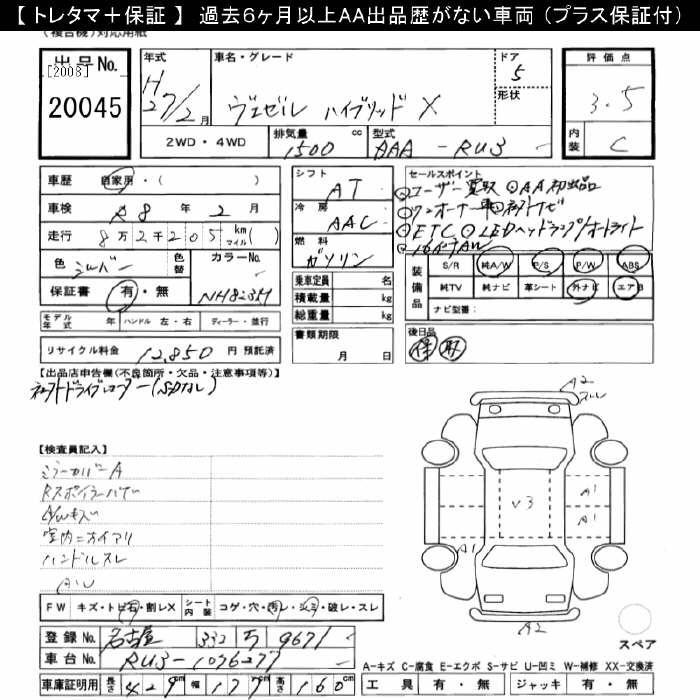 【トレタマ＋保証】 過去6ヶ月以上AA出品歴がない車両(プラス保証付)
(複合機)対応用紙
出品No. [2008] 20045
年式 H27/2月
車名・グレード ヴェゼル ハイブリッド X
ドア 5
形状
評価点 3.5
内装 C
2WD・4WD
排気量 1500 cc
型式 AAA-RU3
車歴 自家用・( )
車検 8年 2月
走行 8万2千205 km マイル( )
色 シルバー
色替
カラーNo.
保証書 有・無
モデル年式 年 ハンドル 左・右 ディーラー・並行
リサイクル料金 12,850円 預託済
シフト AT
冷房 AAC
燃料 ガソリン
乗車定員 名
積載量 kg
総重量 kg
書類期限 月 日
セールスポイント
◎ユーザー買取 ◎AA初出品
◎ワンオーナー
◎ETC ◎LEDヘッドランプ/オートライト
装備品 S/R 純A/W P/S P/W ABS
純TV 純ナビ 革シート 外ナビ エアB
ナビ型番:
後日品 保 取
【出品店申告欄(不良箇所・欠品・注意事項等)】
社外ドライブレコーダー(SDなし)
【検査員記入】
ミラーカバーA
室内ニオイアリ
ハンドルスレ
FW キズ・トビ石・割レX
シート内装 コゲ・穴・汚レ・シミ・破レ・スレ
登録No. 名古屋 332 ラ 9671
車台No. RU3-1076277
車庫証明用 長さ 429 幅 177 高さ 160cm
A2
V3
A1
A1
A1
A2
スペア
A-キズ C-腐食 E-エクボ S-サビ U-凹ミ W-補修 XX-交換済
工具 有・無 ジャッキ 有・無